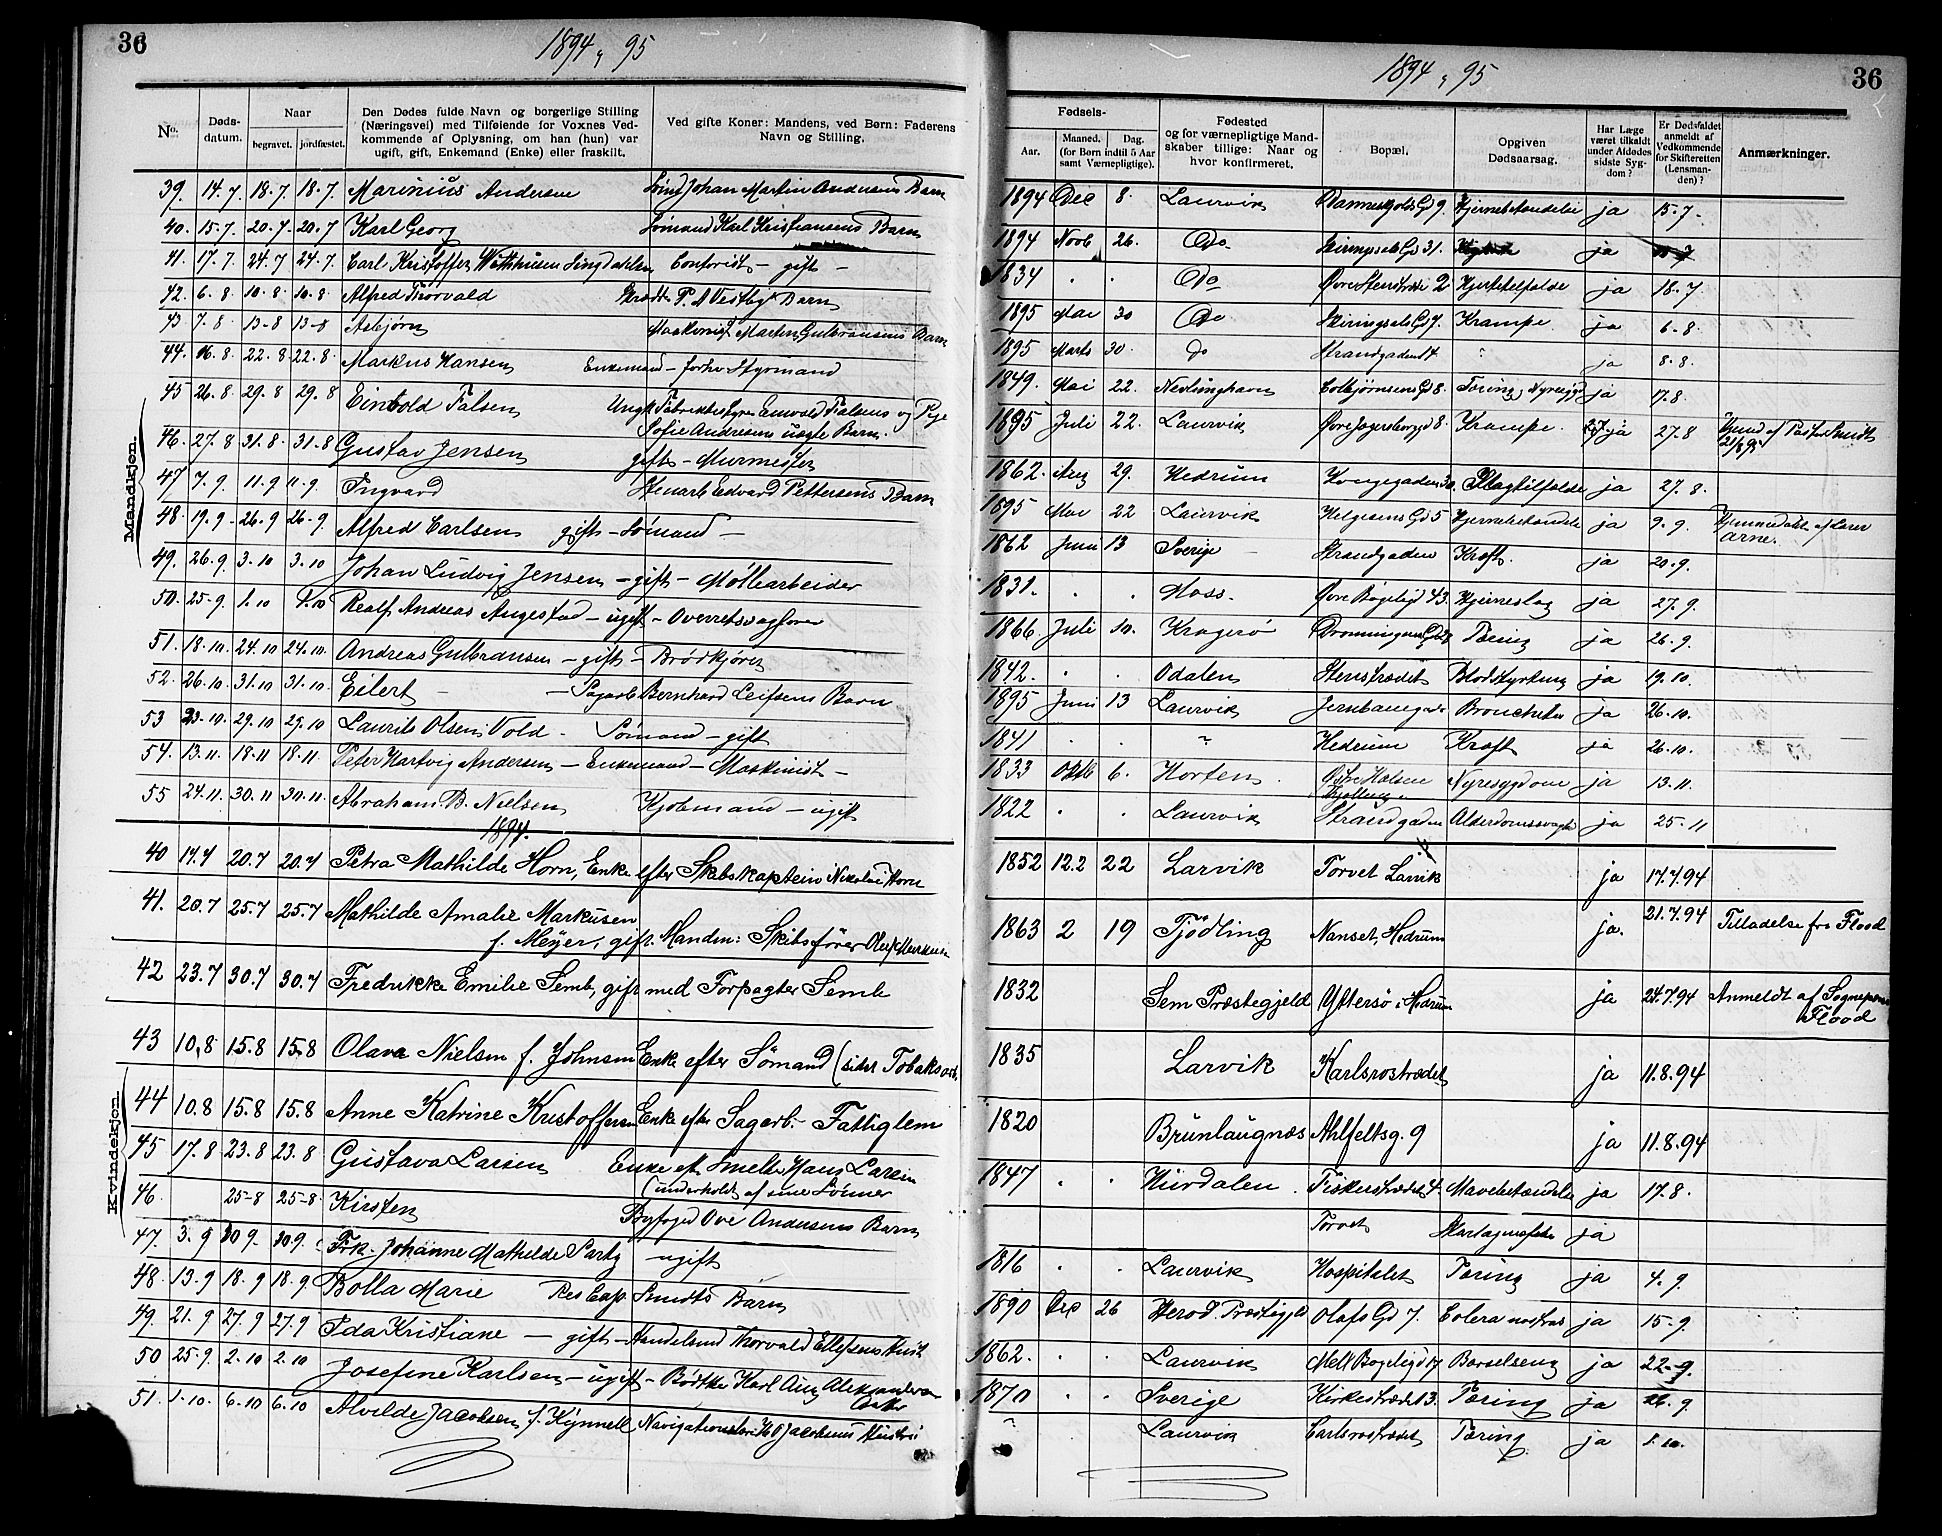 36
1894 " 95
No.
Døds-
datum.
Naar
begravet.
jordfæstet.
Den Dødes fulde Navn og borgerlige Stilling
(Næringsvei) med Tilføiende for Voxnes Ved-
kommende af Oplysning, om han (hun) var
ugift, gift, Enkemand (Enke) eller fraskilt.
Ved gifte Koner: Mandens, ved Børn: Faderens
Navn og Stilling.
Mandkjøn.
39. 14.7. 18.7 18.7. Marinius Andersen Sømd Johan Martin Andersens Barn
40. 15.7. 20.7 20.7 Karl Georg Sømand Karl Kristiansens Barn
41. 17.7. 24.7 24.7. Carl Kristoffer Lingdahlen Contorist - gift -
42. 6.8 10.8 10.8 Alfred Thorvald P. A Vestbys Barn
43 7.8 13-8 13-8 Asbjørn Maskinist Martin Gulbransens Barn
44. 16.8. 22.8 22.8. Markus Hansen Enkemand - forhv. Styrmand
45 26.8 29.8 29.8 Einvold Falsen Ungk. Fabrikbestyrer Einvald Falsens og Pige
Sofie Andresens uægte Barn.
46. 27.8 31.8. 31.8 Gustav Jensen gift - Murmester
47 7.9. 11.9 11.9. Ingvard Stenarb Edvard Pettersens Barn
48. 19.9 26.9 26.9 Alfred Carlsen gift - Sømand -
49. 26.9 3.10 3.10 Johan Ludvig Jensen - gift - Møllearbeider
50. 25-9. 1.10 1.10 Realf Andreas Angestad - ugift - Overretssagfører
51. 18.10. 24.10 24.10. Andreas Gulbransen - gift - Brødkjører
52. 26.10 31.10 31.10. Eilert - Sagarb Bernhard Leifsens Barn
53 23.10. 29.10 29.10 Laurits Olsen Vold - Sømand - gift
54. 13.11. 18.11 18.11. Peter Hartvig Andersen - Enkemand - Maskinist -
55 24.11. 30.11 30.11. Abraham B. Nielsen Kjøbmand - ugift
1894.
Kvindekjøn.
40 17.7 20.7 20.7 Petra Mathilde Horn, Enke efter Skibskaptein Nikolai Horn
41. 20.7 25.7 25.7 Mathilde Amalie Markusen
f. Meyer, gift. Manden: Skibsfører Oluf Markusen
42 23.7 30.7 30.7 Fredrikke Emilie Semb, gift med Forpagter Semb
43 10.8 15.8 15.8 Olava Nielsen f. Johnsen Enke efter Sømand (sidst Tobaksarb.
44 10.8 15.8 15.8 Anne Katrine Kristoffersen Enke efter Sagarb. - Fattiglem
45 17.8 23.8 23.8 Gustava Larsen Enke ef. Smelter Hans Larsen
(underholdt af sine Sønner
46 25-8 25-8. Kirsten Byfoged Ove Andersens Barn
47. 3.9 10.9. 10.9. Frk. Johanne Mathilde Sartz - ugift
48. 13.9 18.9 18.9. Bolla Marie Res Cap. Smidts Barn
49. 21.9 27.9 27.9 Ida Kristiane - gift - Handelsmd Thorvald Ellefsens Hust
50 25.9. 2.10 2.10 Josefine Karlsen - ugift - Bødker Karl Aug Alexandersen
51. 1.10. 6.10 6.10 Alvilde Jacobsen f. Kynnell Jacobsens Hustru
1894 " 95
36
Fødsels-
Aar.
Maaned. Dag.
(for Børn indtil 5 Aar
samt Værnepligtige).
Fødested
og for værnepligtige Mand-
skaber tillige: Naar og
hvor konfirmeret.
Bopæl.
Opgiven
Dødsaarsag.
Har Læge
været tilkaldt
under Afdødes
sidste Syg-
dom?
Er Dødsfaldet
anmeldt af
Vedkommende
for Skifteretten
(Lensman-
den)?
Anmærkninger.
1894 Dec 8. Laurvik Danneskjolds Gd 9. Hjernebetændelse ja 15-7-
1894 Novb 26. Do Skiringsals Gd 31. ja
1834 . . Do Øvre Stenstræde 2 Hjertetilfælde ja 18.7
1895 Mai 30 Do Skiringsals Gd 7. Krampe ja 6-8.
1895 Marts 30. do Strandgaden 14. " ja 8-8.
1849. Mai 22. Nevlinghavn Colbjørnsens Gd 8. Tæring, Nyresygd ja 17.8.
1895 Juli 22. Laurvik Øvre Jegersborgd 8. Krampe. ja 27.8 Hjemd af Pastor Smidt
1862. Aug 29. Hedrum Kongegaden 30. Slagtilfælde ja 27.8.
1895 Mai 22 Laurvik Helgesens Gd 5 Hjernebetændelse ja 9-9. Hjemmedøbt af Lærer
Arne.
1862 Juni 13 Sverige - Strandgaden Kræft. ja 20.9.
1831. . . Moss. Øvre Bøgeligd 43. Hjerneslag ja 27.9.
1866 Juli 10. Kragerø Tæring ja 26.9.
1842. . . Odalen Stenstrædet Blodstyrtning ja 19.10.
1895 Juni 13 Laurvik Jernbanegade Bronchitis ja 26-10.
1841 . . " Hedrum Kræft ja 26-10.
1833 Oktb 6. Horten. Østre Halsen
Tjølling. Nyresygdom ja 13.11.
1822 . . Laurvik Strandgaden Alderdomssvaghed ja 25-11
1852 12.2 22 Larvik Torvet Larvik ja 17.7.94
1863 2 19 Tjödling Nanset, Hedrum ja. 21.7.94 Tilladelse fra Flood
1832 Sem Præstegjeld Yttersø i Hedrum ja 24.7.94 Anmeldt af Sognepræst
Flood
1835 Larvik Karlsrostrædet ja 11.8.94
1820 Brunlaugnæs Ahlfeltsg. 9 ja 11.8.94
1847 . . Hurdalen. Fiskerstrædet 4. Mavebetændelse ja 17.8.
Torvet ja
1816 . . Laurvik Hospitalet Tæring ja 4.9.
1890 Dec 26 Herod. Præstegjeld Olafs Gd 7. Colera nostras ja 15-9.
1862. . . Laurvik Mell Bøgeligd 17 Barselseng ja 22-9.
1870 . . Sverige Kirkestrædet 3. Tæring ja 26.9
" Laurvik Carlsrostrædet Tæring ja 1.10.